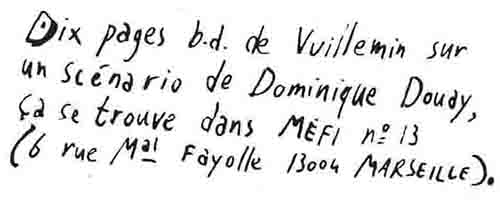 Dix pages b.d. de Vuillemin sur
un scénario de Dominique Douay,
ça se trouve dans MÉFI nº 13
(6 rue Mal Fayolle 13004 MARSEILLE).